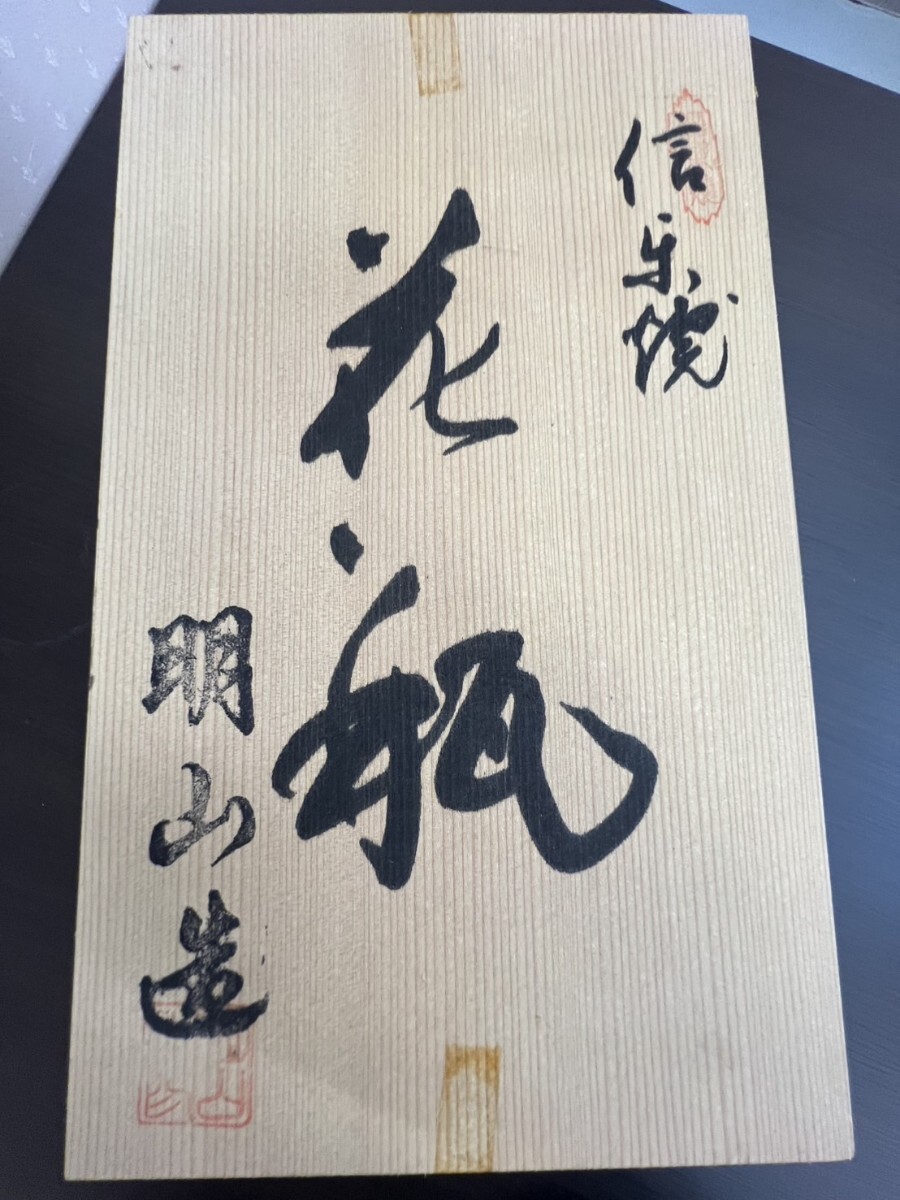 信楽焼
花瓶
明山造